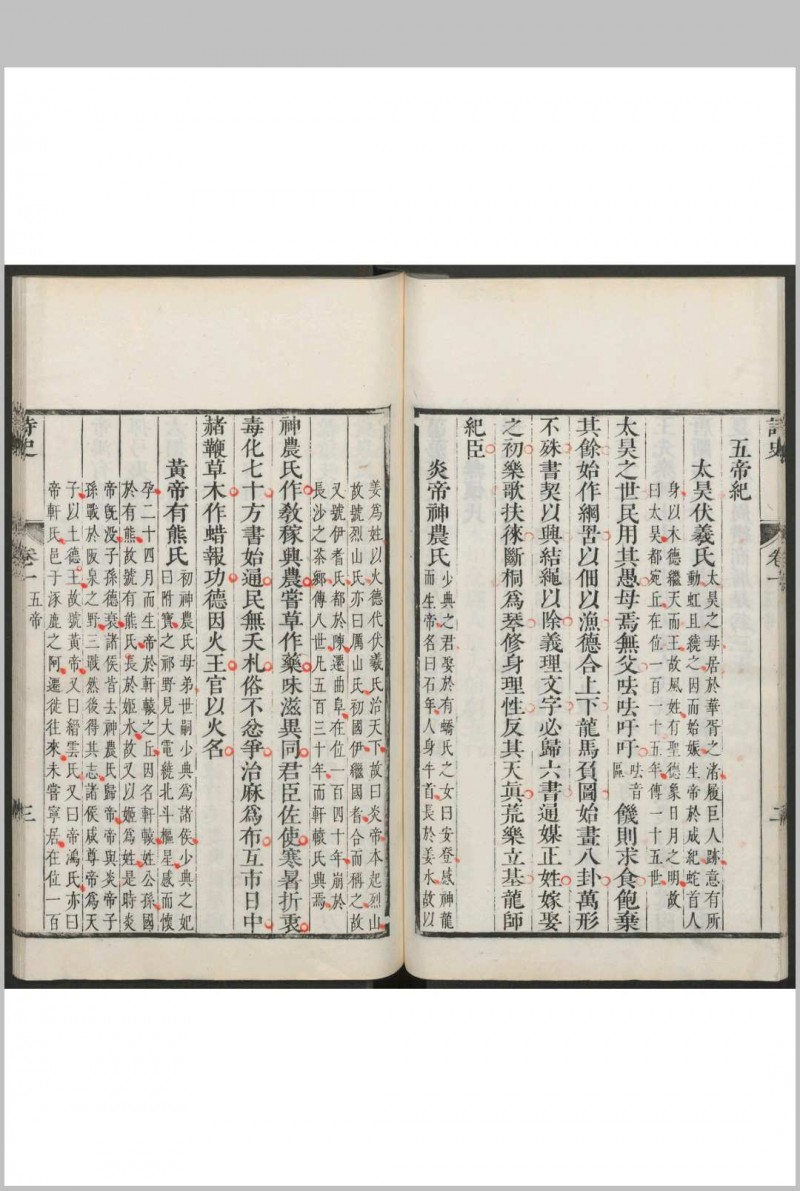 五帝紀
太昊伏羲氏
太昊之母居於華胥之渚履巨人跡意有所
動虹且繞之因而始娠生帝於成紀蛇首人
身以木德繼天而王故風姓有聖德象日月之明故
曰太昊都宛丘在位一百一十五年傳一十五世
太昊之世民用其愚母焉無父呿呿吁吁
呿音
區
饑則求食飽棄
其餘始作綱罟以佃以漁德合上下龍馬負圖始畫八卦萬形
不殊書契以興結繩以除義理文字必歸六書通媒正姓嫁娶
之初樂歌扶徠斷桐爲琴修身理性反其天眞荒樂立基龍師
紀臣
炎帝神農氏
少典之君娶於有蟜氏之女曰安登感神龍
而生帝名曰石年人身牛首長於姜水故以
姜爲姓以火德代伏羲氏治天下故曰炎帝本起烈山
故號烈山氏亦曰厲山氏初國伊繼國耆合而稱之故
又號伊耆氏都於陳遷曲阜在位一百四十年崩於
長沙之茶鄉傳八世凡五百三十年而軒轅氏興焉
神農氏作敎稼興農嘗草作藥味滋異同君臣佐使寒暑折衷
毒化七十方書始通民無夭札俗不忿爭治麻爲布互市日中
赭鞭草木作蜡報功德因火王官以火名
黃帝有熊氏
初神農氏母弟世嗣少典爲諸侯少典之妃
曰附寶之祁野見大電繞北斗樞星感而懷
孕二十四月而生帝於軒轅之丘因名軒轅姓公孫國
於有熊故號有熊氏長於姬水故又以姬爲姓是時炎
帝旣没子孫德衰諸侯皆去神農氏歸帝帝與炎帝子
孫戰於阪泉之野三戰然後得其志諸侯咸尊帝爲天
子以土德王故號黃帝又曰縉雲氏又曰帝鴻氏亦曰
帝軒氏邑于涿鹿之阿遷徙往來未嘗寧居在位一百
詩史
卷一
五帝
三